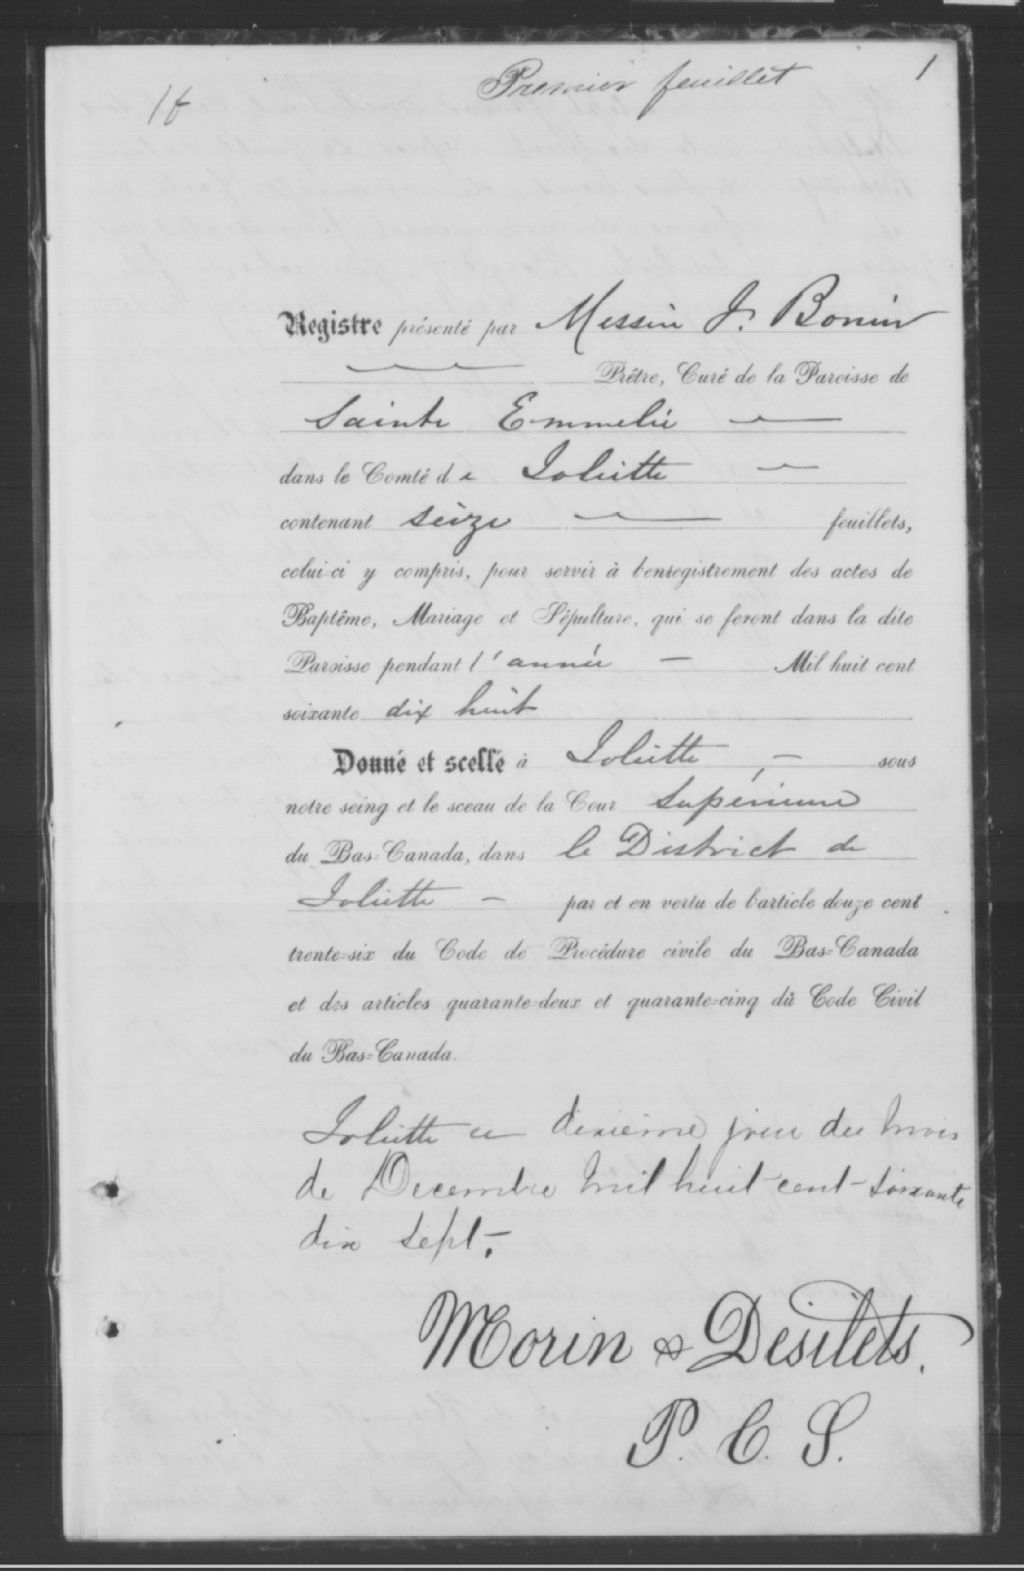 Premier feuillet
1
16
Registre présenté par Messire J. Bonin
Prêtre, Curé de la Paroisse de
Sainte Emmelie
dans le Comté de Joliette
contenant seize feuillets,
celui-ci y compris, pour servir à l'enregistrement des actes de
Baptême, Mariage et Sépulture, qui se feront dans la dite
Paroisse pendant l'année Mil huit cent
soixante dix huit
Donné et scellé à Joliette, sous
notre seing et le sceau de la Cour Supérieure
du Bas-Canada, dans le District de
Joliette par et en vertu de l'article douze cent
trente-six du Code de Procédure civile du Bas-Canada
et des articles quarante-deux et quarante-cinq du Code Civil
du Bas-Canada.
Joliette ce dixième jour du mois
de Decembre mil huit cent soixante
dix sept.
Morin & Desilets.
P. C. S.